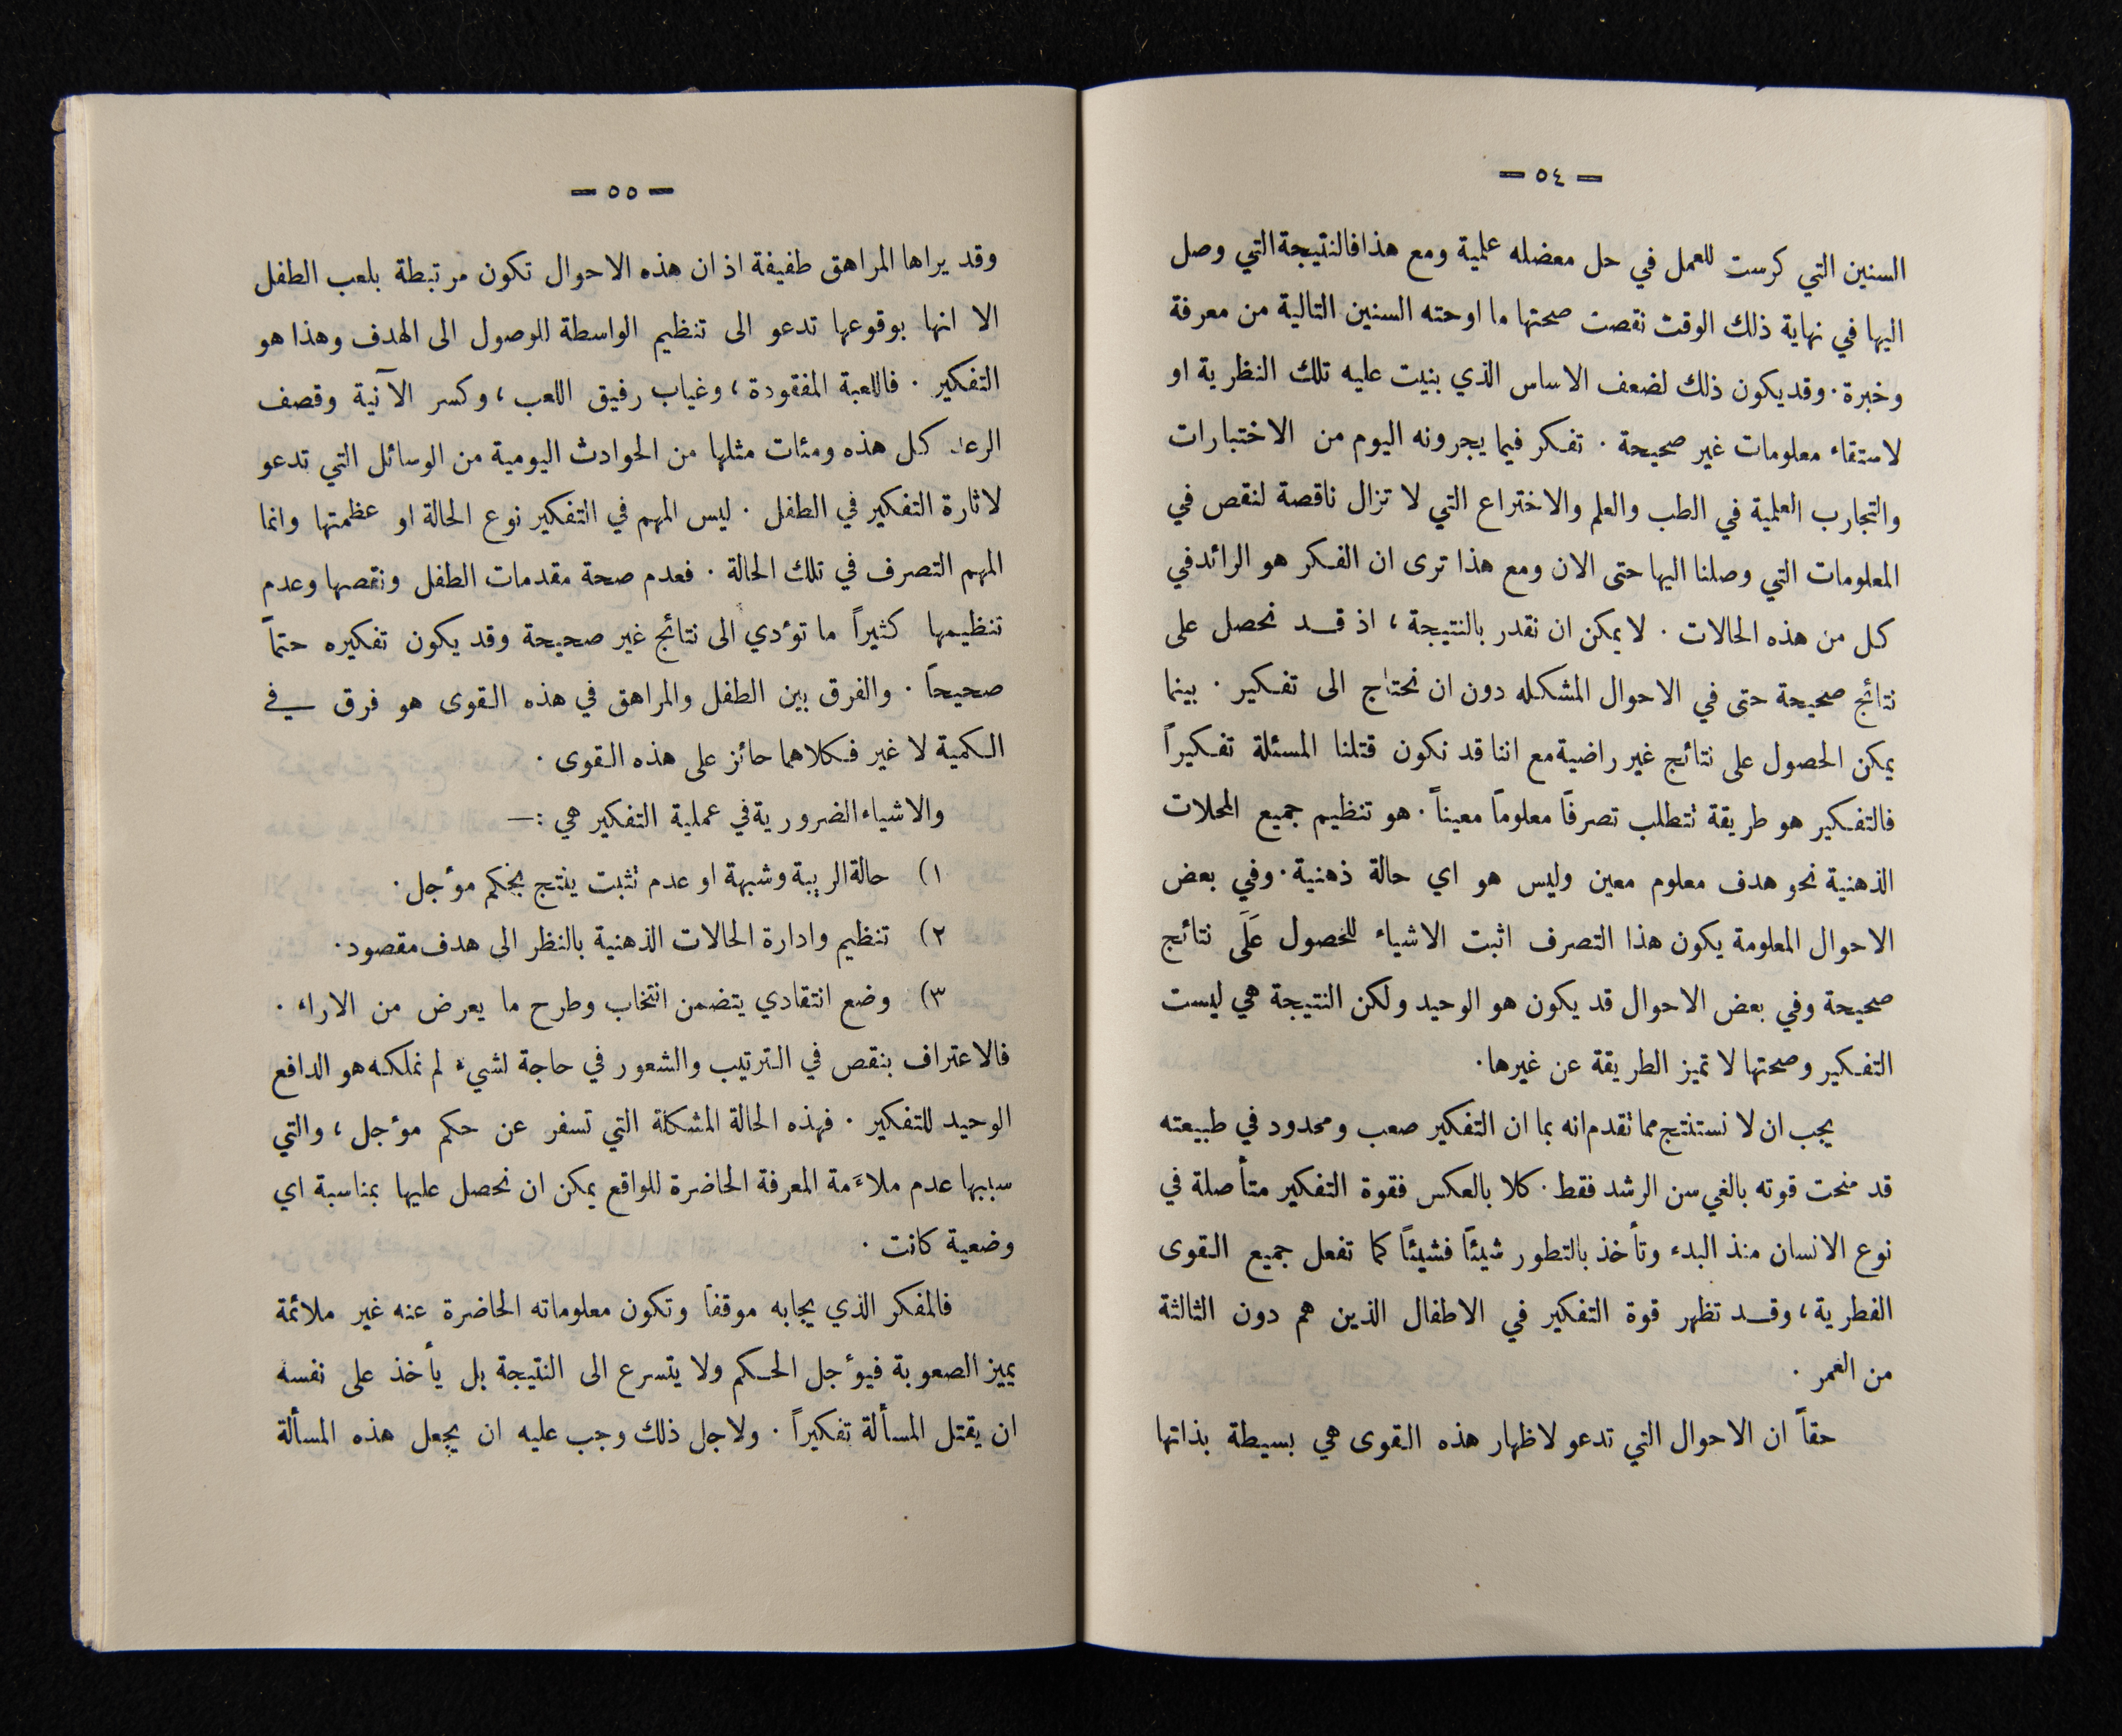 — ٥٤ —
السنين التي كرست للعمل في حل معضله علمية ومع هذا فالنتيجة التي وصل
اليها في نهاية ذلك الوقت نقصت صحتها ما اوحته السنين التالية من معرفة
وخبرة. وقد يكون ذلك لضعف الاساس الذي بنيت عليه تلك النظرية او
لاستقاء معلومات غير صحيحة. تفكر فيما يجرونه اليوم من الاختبارات
والتجارب العلمية في الطب والعلم والاختراع التي لا تزال ناقصة لنقص في
المعلومات التي وصلنا اليها حتى الان ومع هذا ترى ان الفكر هو الرائد في
كل من هذه الحالات. لا يمكن ان نقدر بالنتيجة، اذ قد نحصل على
نتائج صحيحة حتى في الاحوال المشكله دون ان نحتاج الى تفكير. بينما
يمكن الحصول على نتائج غير راضية مع اننا قد نكون قتلنا المسئلة تفكيراً
فالتفكير هو طريقة تتطلب تصرفاً معلوماً معيناً. هو تنظيم جميع المحلات
الذهنية نحو هدف معلوم معين وليس هو اي حالة ذهنية. وفي بعض
الاحوال المعلومة يكون هذا التصرف اثبت الاشياء للحصول عَلَى نتائج
صحيحة وفي بعض الاحوال قد يكون هو الوحيد ولكن النتيجة هي ليست
التفكير وصحتها لا تميز الطريقة عن غيرها.
يجب ان لا نستنتج مما تقدم انه بما ان التفكير صعب ومحدود في طبيعته
قد منحت قوته بالغي سن الرشد فقط. كلا بالعكس فقوة التفكير متأصلة في
نوع الانسان منذ البدء وتأخذ بالتطور شيئاً فشيئاً كما تفعل جميع القوى
الفطرية، وقد تظهر قوة التفكير في الاطفال الذين هم دون الثالثة
من العمر.
حقاً ان الاحوال التي تدعو لاظهار هذه القوى هي بسيطة بذاتها
— ٥٥ —
وقد يراها المراهق طفيفة اذ ان هذه الاحوال تكون مرتبطة بلعب الطفل
الا انها بوقوعها تدعو الى تنظيم الواسطة للوصول الى الهدف وهذا هو
التفكير. فاللعبة المفقودة، وغياب رفيق اللعب، وكسر الآنية وقصف
الرعد كل هذه ومئات مثلها من الحوادث اليومية من الوسائل التي تدعو
لاثارة التفكير في الطفل. ليس المهم في التفكير نوع الحالة او عظمتها وانما
المهم التصرف في تلك الحالة. فعدم صحة مقدمات الطفل ونقصها وعدم
تنظيمها كثيراً ما تؤدي الى نتائج غير صحيحة وقد يكون تفكيره حتماً
صحيحاً. والفرق بين الطفل والمراهق في هذه القوى هو فرق في
الكمية لا غير فكلاهما حائز على هذه القوى.
والاشياء الضرورية في عملية التفكير هي :—
١) حالة الريبة وشبهة او عدم تثبت ينتج بحكم مؤجل.
٢) تنظيم وادارة الحالات الذهنية بالنظر الى هدف مقصود.
٣) وضع انتقادي يتضمن انتخاب وطرح ما يعرض من الاراء.
فالاعتراف بنقص في الترتيب والشعور في حاجة لشيء لم نملكه هو الدافع
الوحيد للتفكير. فهذه الحالة المشكلة التي تسفر عن حكم مؤجل، والتي
سببها عدم ملاءَمة المعرفة الحاضرة للواقع يمكن ان نحصل عليها بمناسبة اي
وضعية كانت.
فالمفكر الذي يجابه موقفاً وتكون معلوماته الحاضرة عنه غير ملائمة
يميز الصعوبة فيؤجل الحكم ولا يتسرع الى النتيجة بل يأخذ على نفسه
ان يقتل المسألة تفكيراً. ولاجل ذلك وجب عليه ان يجعل هذه المسألة